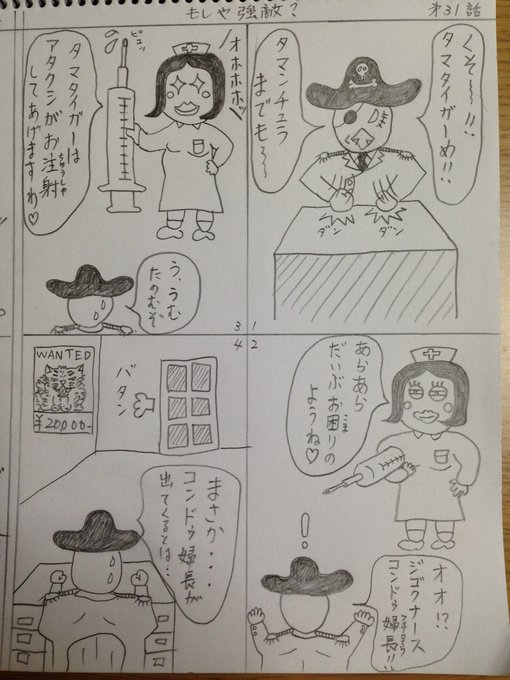 もしや強敵?
第31話
くそ〜〜!!
タマタイガーめ!!
タマンチュラ
までも〜〜
ダン
ダン
1
2
あらあら
だいぶお困りの
こま
ようね♡
!
オオ!?
ジゴクナース
コンドゥ婦長!!
オホホホホッ
ピュッ
タマタイガーは
アタクシがお注射
ちゅうしゃ
してあげますわ♡
う、うむ
たのむぞ
3
4
WANTED
¥20000-
バタン
まさか・・・
コンドゥ婦長が
出てくるとは・・・